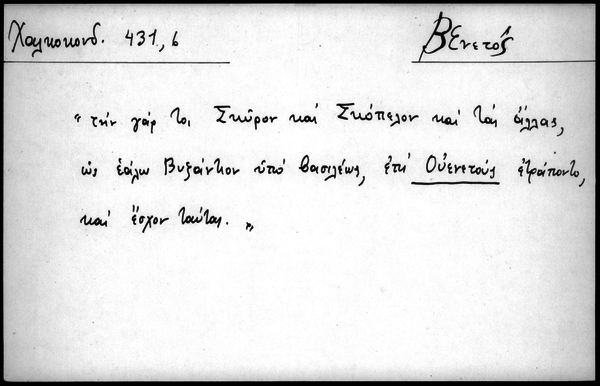 Χαλκοκονδ. 431, 6
Βενετός
"τὴν γάρ τοι Σκῦρον καὶ Σκόπελον καὶ τὰς ἄλλας,
ὡς ἑάλω Βυζάντιον ὑπὸ βασιλέως, ἐπὶ Οὐενετοὺς ἐτράποντο,
καὶ ἔσχον ταύτας."